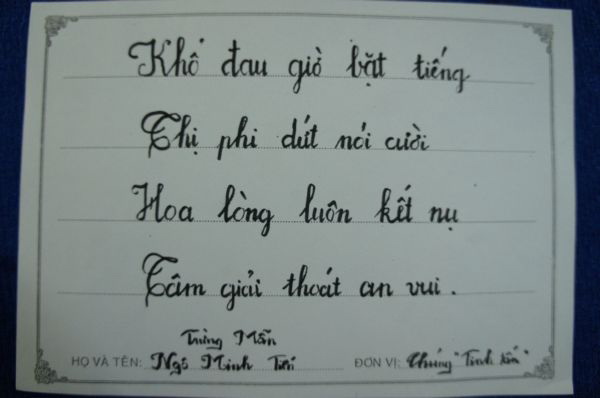 Khổ đau giờ bặt tiếng
Thị phi dứt nói cười
Hoa lòng luôn kết nụ
Tâm giải thoát an vui.
Trùng Mẫn
HỌ VÀ TÊN: Ngô Minh ĐƠN VỊ: Chúng "Tinh tấn"